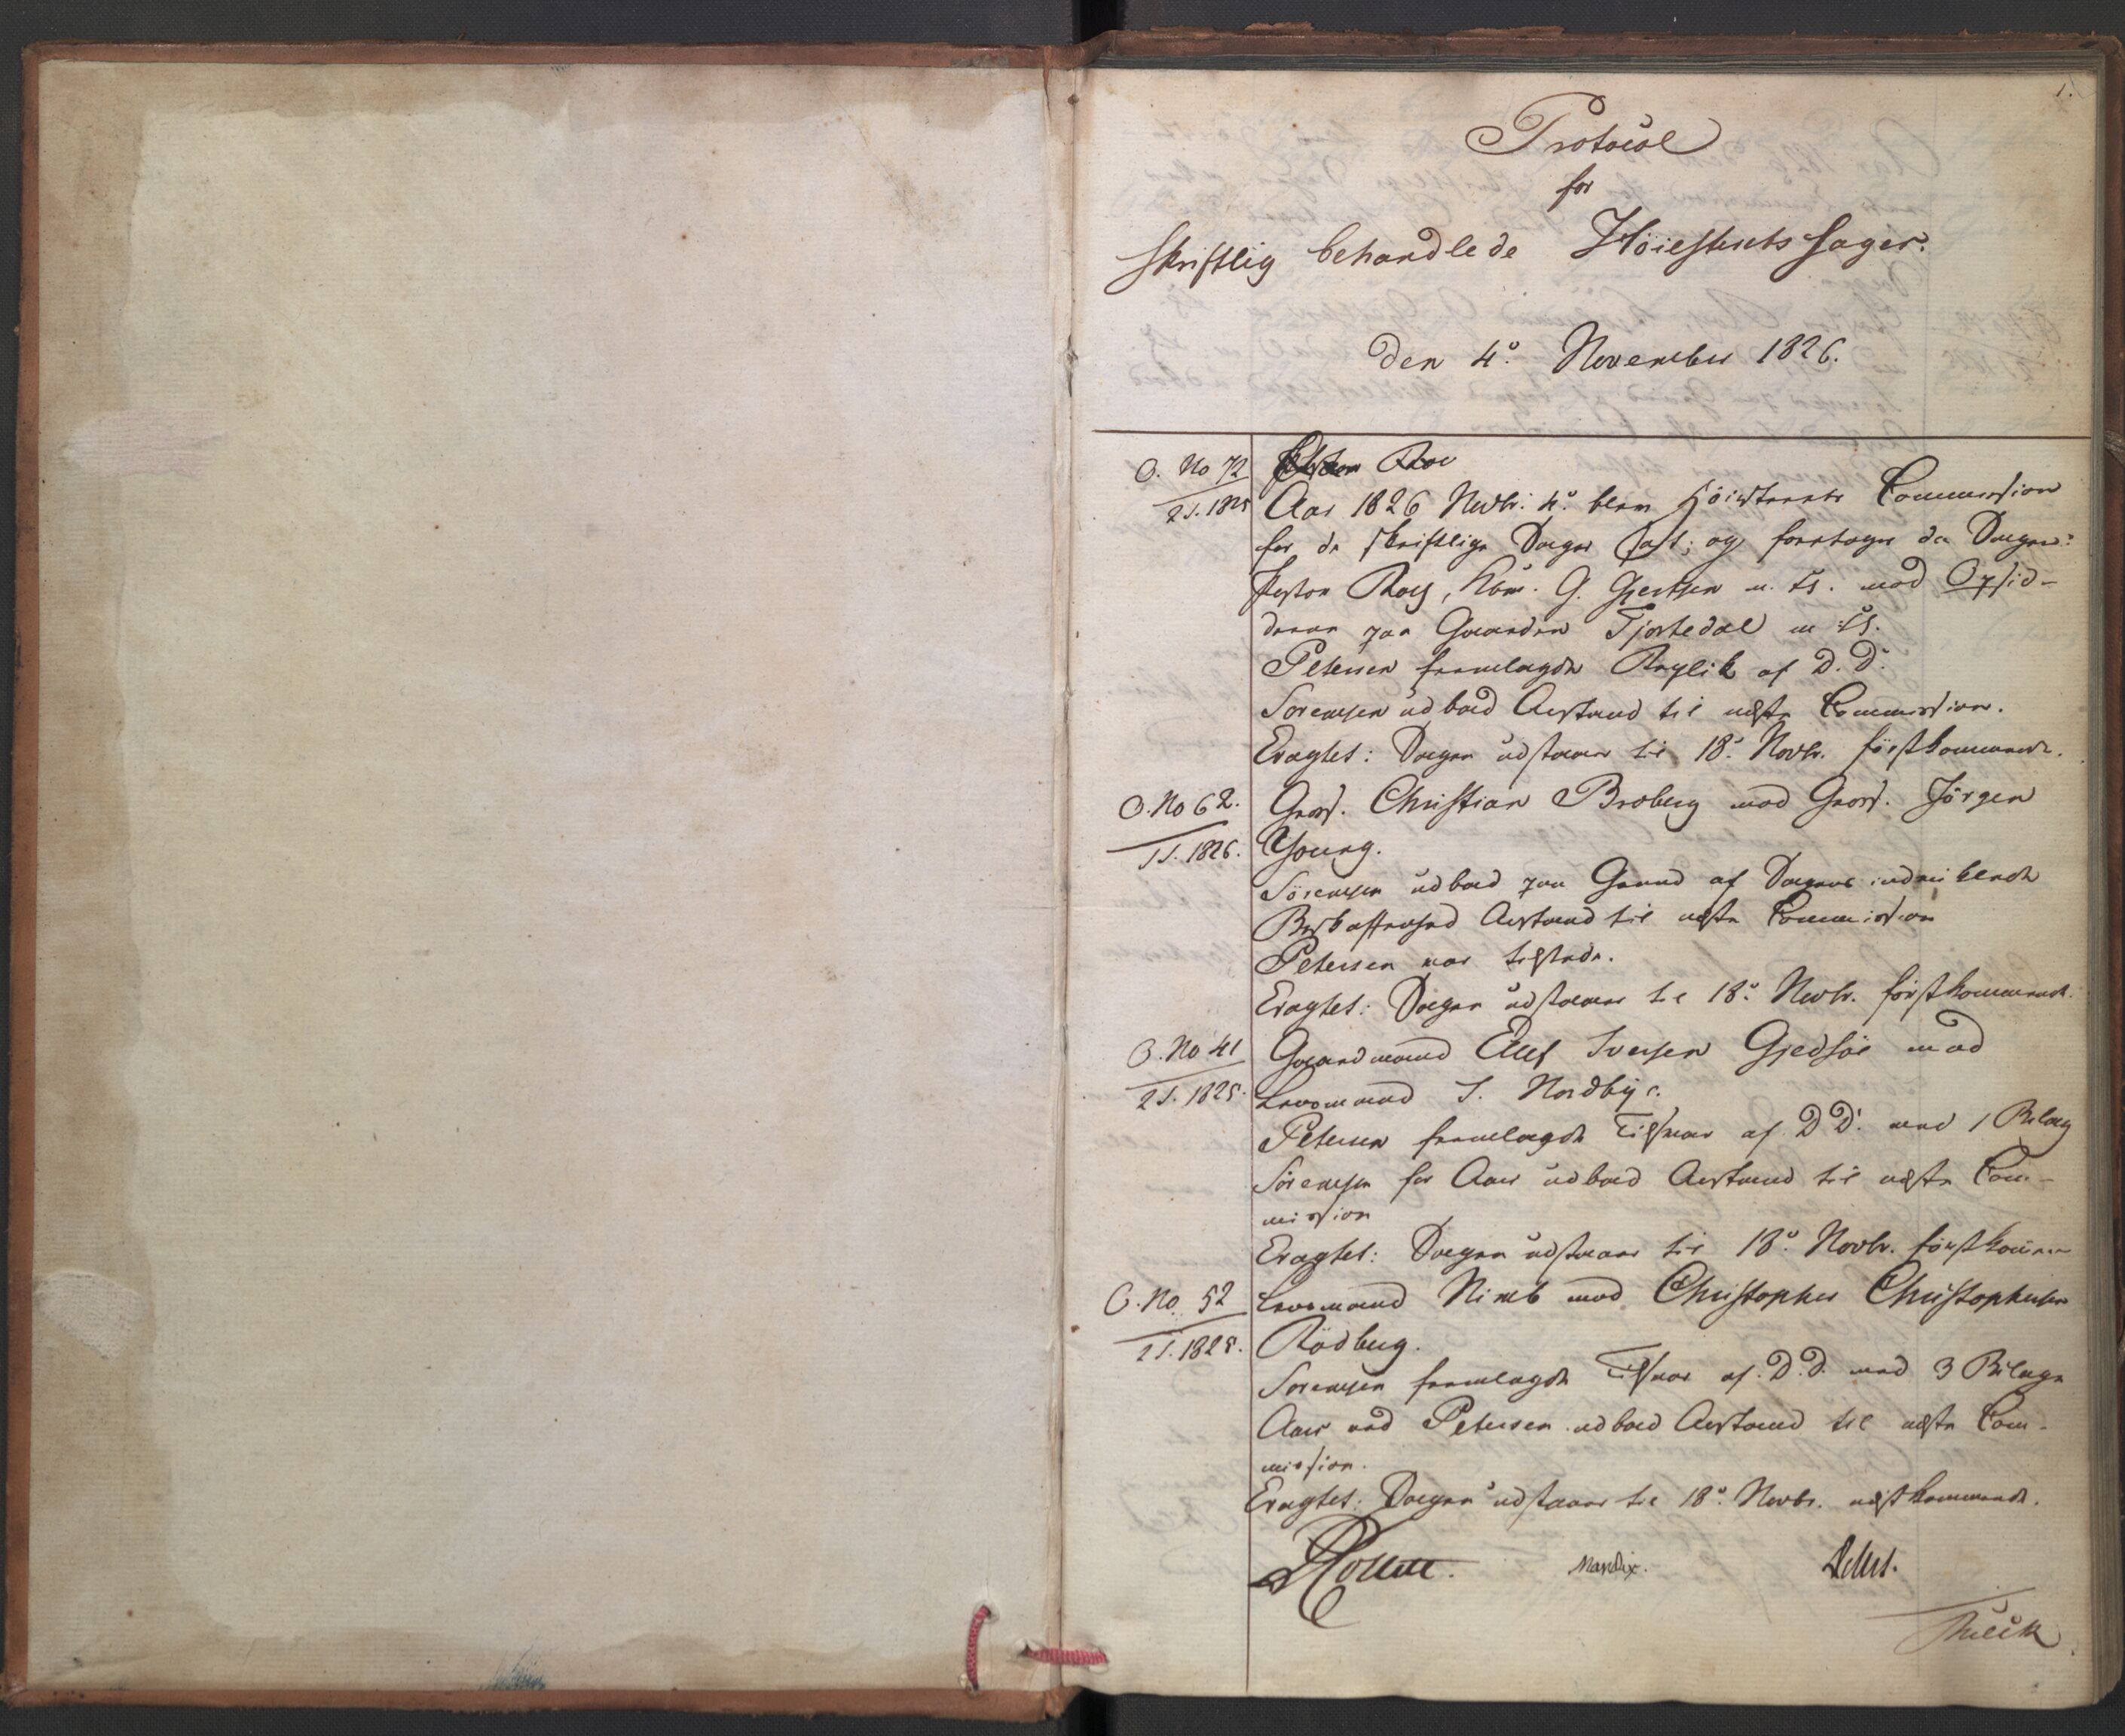 1.
Protocol
for
skriftlig behandlede Höiesterets Sager.
den 4º. November 1826.
O. No 72
2 S. 1825
Aar 1826 Novbr. 4º. blev Höiesterets Commission
for de skriftlige Sager sat; og foretoges da Sagen:
Pastor Roy, Kbm. G. Gjertsen m. fl. mod Opsid-
derne paa Gaarden Tjostedal m. fl.
Petersen fremlagde Replik af D. D.
Sörensen udbad Anstand til næste Commission.
Eragtet: Sagen udstaaer til 18º. Novbr. förstkommende.
O. No 62.
1 S. 1826.
Gross. Christian Broberg mod Gross. Jörgen
Young.
Sörensen udbad paa Grund af Sagens indviklede
Beskaffenhed Anstand til næste Commission
Petersen var tilstede.
Eragtet: Sagen udstaaer til 18º. Novbr. förstkommende.
O. No 41
2 S. 1825.
Gaardmand Ellef Iversen Gjedsöe mod
Lensmand S. Nordbye.
Petersen fremlagde Tilsvar af D. D. med 1 Bilag
Sörensen for Aars udbad Anstand til næste Com-
mission
Eragtet: Sagen udstaaer til 18º. Novbr. förstkommende
O. No. 52
2 S. 1825.
Lensmand Nimb mod Christopher Christophersen
Rödberg.
Sörensen fremlagde Tilsvar af D. D. med 3 Bilage
Aars ved Petersen udbad Anstand til næste Com-
mission.
Eragtet: Sagen udstaaer til 18º. Novbr. næstkommende.
Mandix.